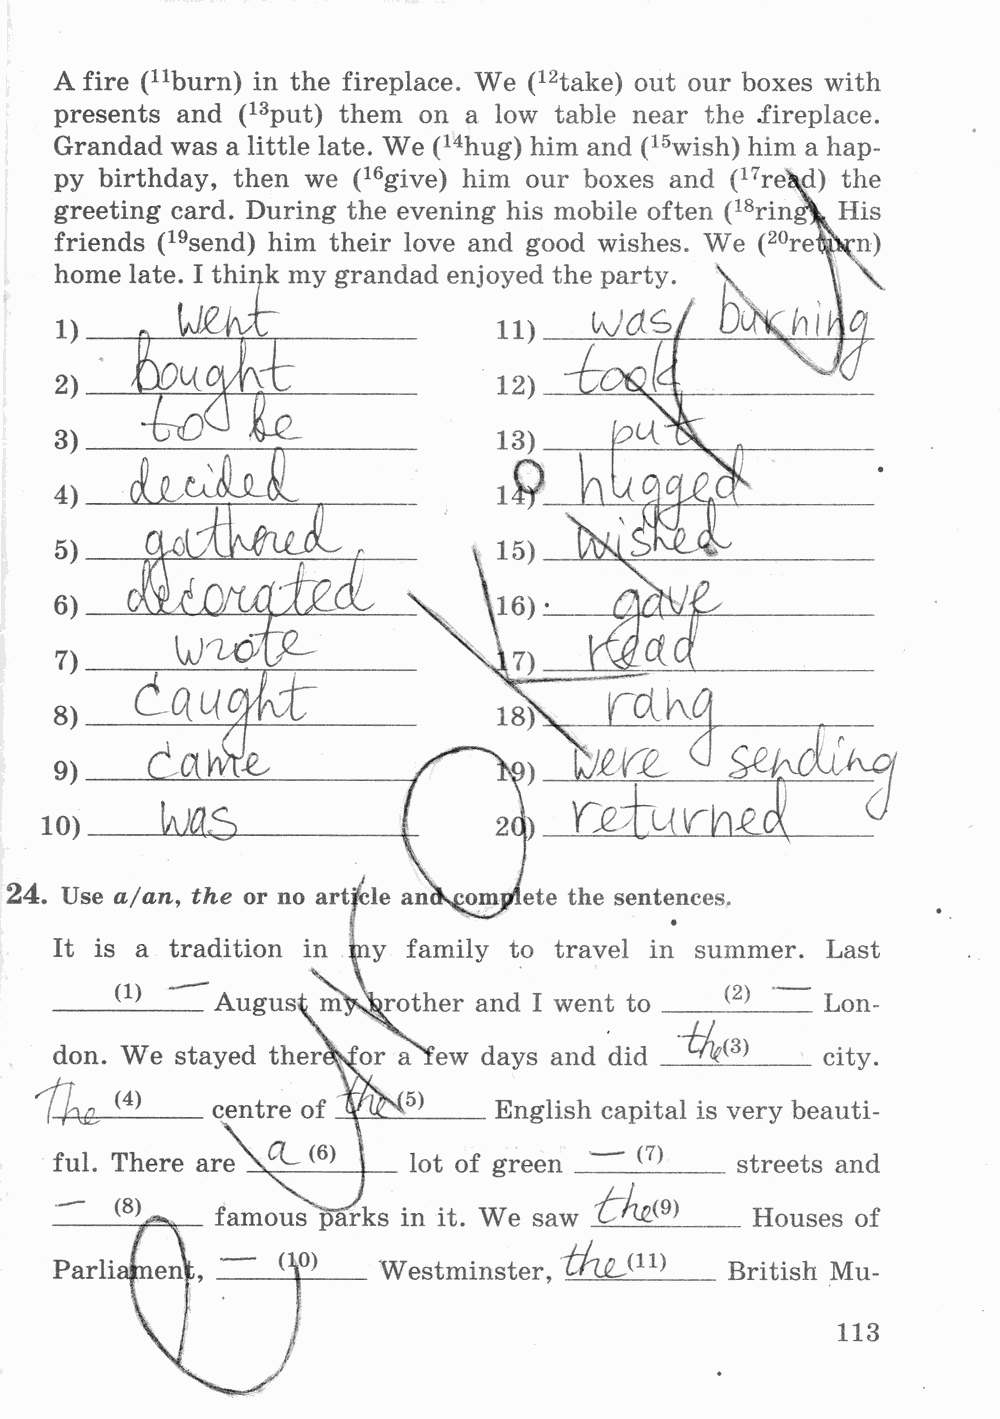 A fire (¹¹burn) in the fireplace. We (¹²take) out our boxes with
presents and (¹³put) them on a low table near the fireplace.
Grandad was a little late. We (¹⁴hug) him and (¹⁵wish) him a hap-
py birthday, then we (¹⁶give) him our boxes and (¹⁷read) the
greeting card. During the evening his mobile often (¹⁸ring). His
friends (¹⁹send) him their love and good wishes. We (²⁰return)
home late. I think my grandad enjoyed the party.
1) went
2) bought
3) to be
4) decided
5) gathered
6) decorated
7) wrote
8) caught
9) came
10) was
11) was burning
12) took
13) put
14) hugged
15) wished
16) gave
17) read
18) rang
19) were sending
20) returned
24. Use a/an, the or no article and complete the sentences.
It is a tradition in my family to travel in summer. Last
(1) — August my brother and I went to (2) — Lon-
don. We stayed there for a few days and did the (3) city.
The (4) centre of the (5) English capital is very beauti-
ful. There are a (6) lot of green — (7) streets and
— (8) famous parks in it. We saw the (9) Houses of
Parliament, — (10) Westminster, the (11) British Mu-
113